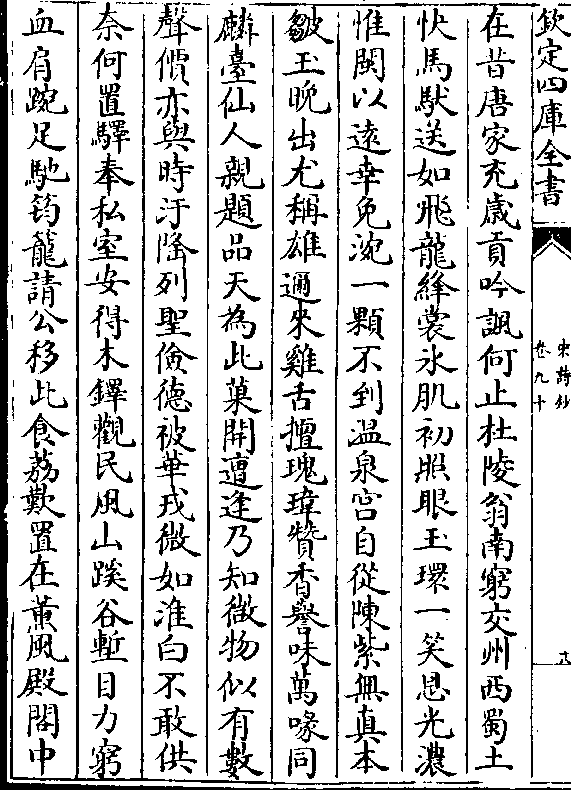 欽定四庫全書
宋詩鈔
卷九十
在昔唐家充歲貢吟諷何止杜陵翁南窮交州西蜀土
快馬馱送如飛龍絳裳氷肌初照眼玉環一笑恩光濃
惟閩以遠幸免涴一顆不到温泉宫自從陳紫無真本
皺玉晩出尤稱雄邇來雞舌擅瑰瑋贊香譽味萬喙同
麟臺仙人親題品天為此菓開遭逢乃知微物似有數
聲價亦與時汙隆列聖儉德被華戎微如淮白不敢供
奈何置驛奉私室安得木鐸觀民風山蹊谷塹目力窮
血肩踠足馳筠籠請公移此食荔歎置在薰風殿閣中